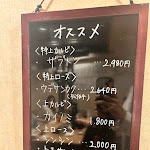 オススメ
〈特上カルビ〉
・ザブトン
2,980円
〈特上ロース〉
・ウデサンカク
2,640円
〈上カルビ〉
・カイノミ
1,800円
〈上ロース〉
・ランシン
2,000円